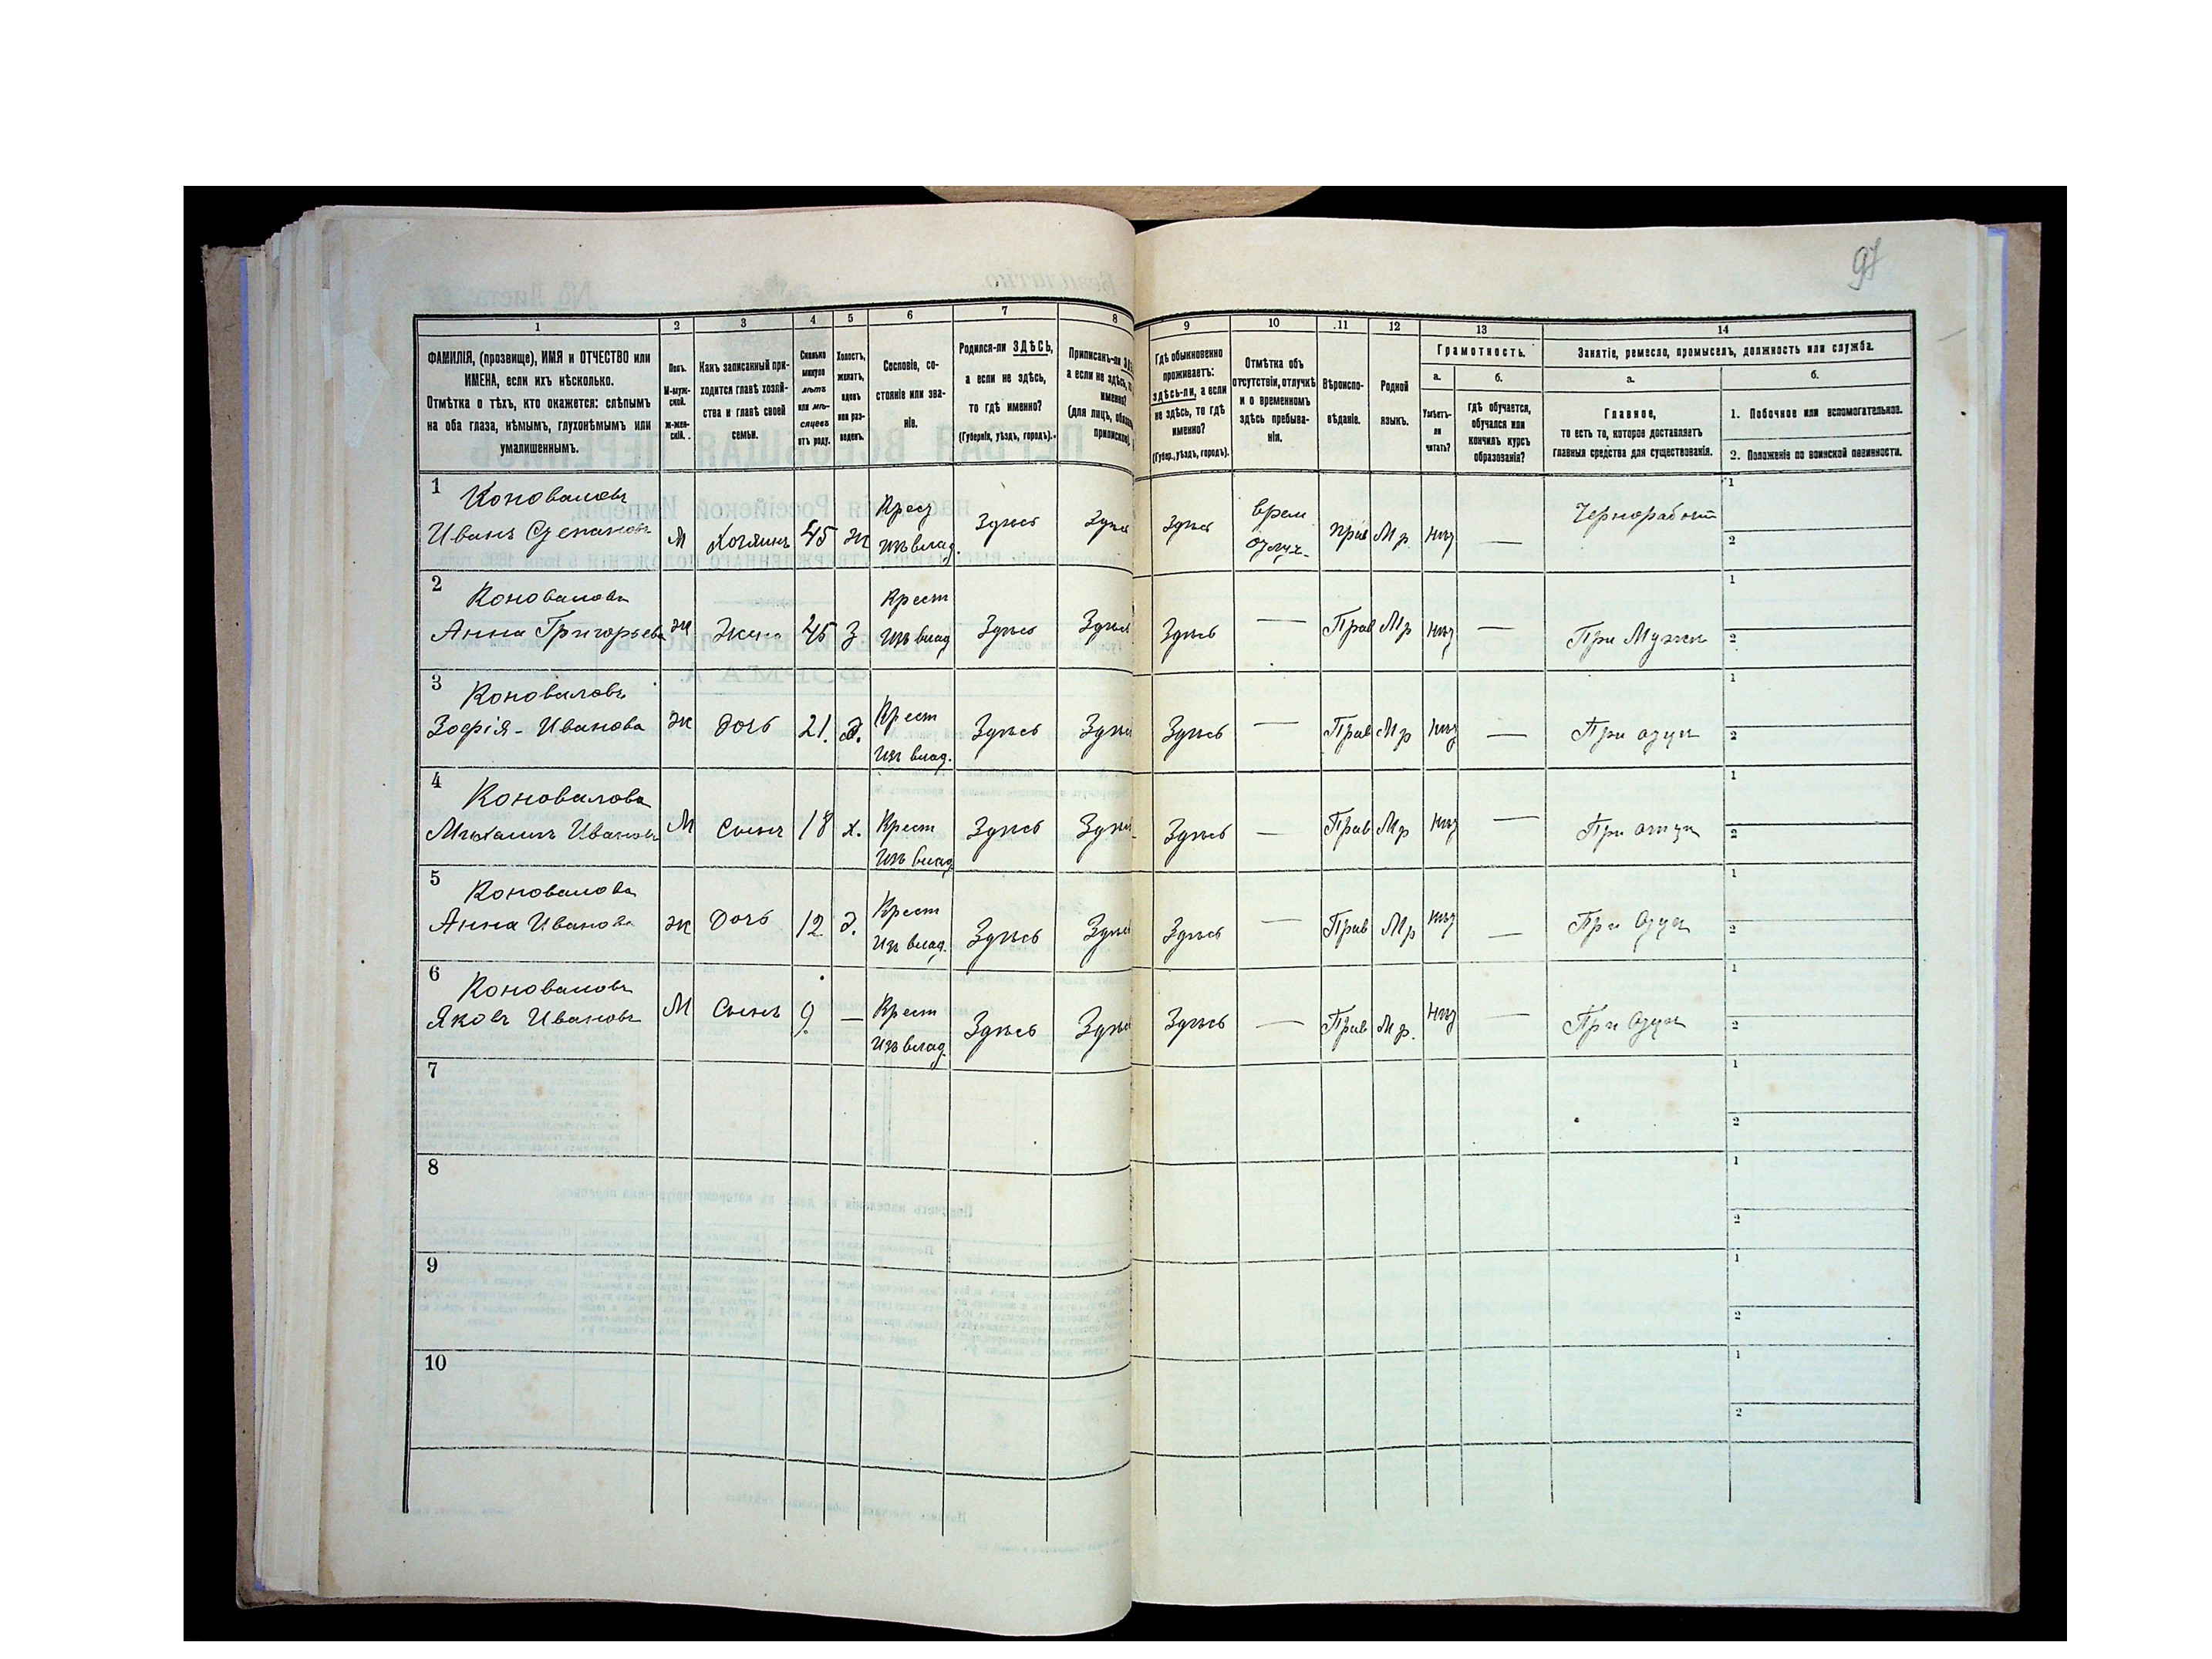 97
1 2 3 4 5 6 7 8 9 10 11 12 13 14
ФАМИЛІЯ, (прозвище), ИМЯ и ОТЧЕСТВО или
ИМЕНА, если ихъ нѣсколько.
Отмѣтка о тѣхъ, кто окажется: слѣпымъ
на оба глаза, нѣмымъ, глухонѣмымъ или
умалишеннымъ.
Полъ.
М-муж-
ской.
Ж-жен-
скій.
Какъ записанный при-
ходится главѣ хозяй-
ства и главѣ своей
семьи.
Сколько
минуло
лѣтъ
или мѣ-
сяцевъ
отъ роду.
Холостъ,
женатъ,
вдовъ
или раз-
веденъ.
Сословіе, со-
стояніе или зва-
ніе.
Родился-ли ЗДѢСЬ,
а если не здѣсь,
то гдѣ именно?
(Губернія, уѣздъ, городъ).
Приписанъ-ли
а если не здѣсь,
именно?
(для лицъ,
Гдѣ обыкновенно
проживаетъ:
здѣсь-ли, а если
не здѣсь, то гдѣ
именно?
(Губер., уѣздъ, городъ).
Отмѣтка объ
отсутствіи, отлучкѣ
и о временномъ
здѣсь пребыва-
ніи.
Вѣроиспо-
вѣданіе.
Родной
языкъ.
Грамотность.
а.
Умѣетъ-
ли
читать?
б.
гдѣ обучается,
обучался или
кончилъ курсъ
образованія?
Занятіе, ремесло, промыселъ, должность или служба.
а.
Главное,
то есть то, которое доставляетъ
главныя средства для существованія.
б.
1. Побочное или вспомогательное.
2. Положеніе по воинской повинности.
1 Коноваловъ
Иванъ Степановъ М Хозяинъ 45 ж Крест
изъ влад. Здѣсь Здѣсь Здѣсь врем
отлуч. Прав Мр нѣт — Чернорабочій 1
2
2 Коновалова
Анна Григорьева ж Жена 45 З Крест
изъ влад Здѣсь Здѣсь Здѣсь — Прав Мр нѣт — При Мужи 1
2
3 Коновалова
Зофія - Иванова ж дочь 21. д. Крест
изъ влад. Здѣсь Здѣсь Здѣсь — Прав Мр нѣт — При отци 1
2
4 Коновалова
Михаилъ Ивановъ М Сынъ 18 х. Крест
изъ влад Здѣсь Здѣсь Здѣсь — Прав Мр нѣт — При отци 1
2
5 Коновалова
Анна Иванова ж Дочь 12 д. Крест
изъ влад. Здѣсь Здѣсь Здѣсь — Прав Мр нѣт — При Отци 1
2
6 Коноваловъ
Яковъ Ивановъ М Сынъ 9. — Крест
изъ влад. Здѣсь Здѣсь Здѣсь — Прав Мр. нѣт — При Отци 1
2
7 1
2
8 1
2
9 1
2
10 1
2